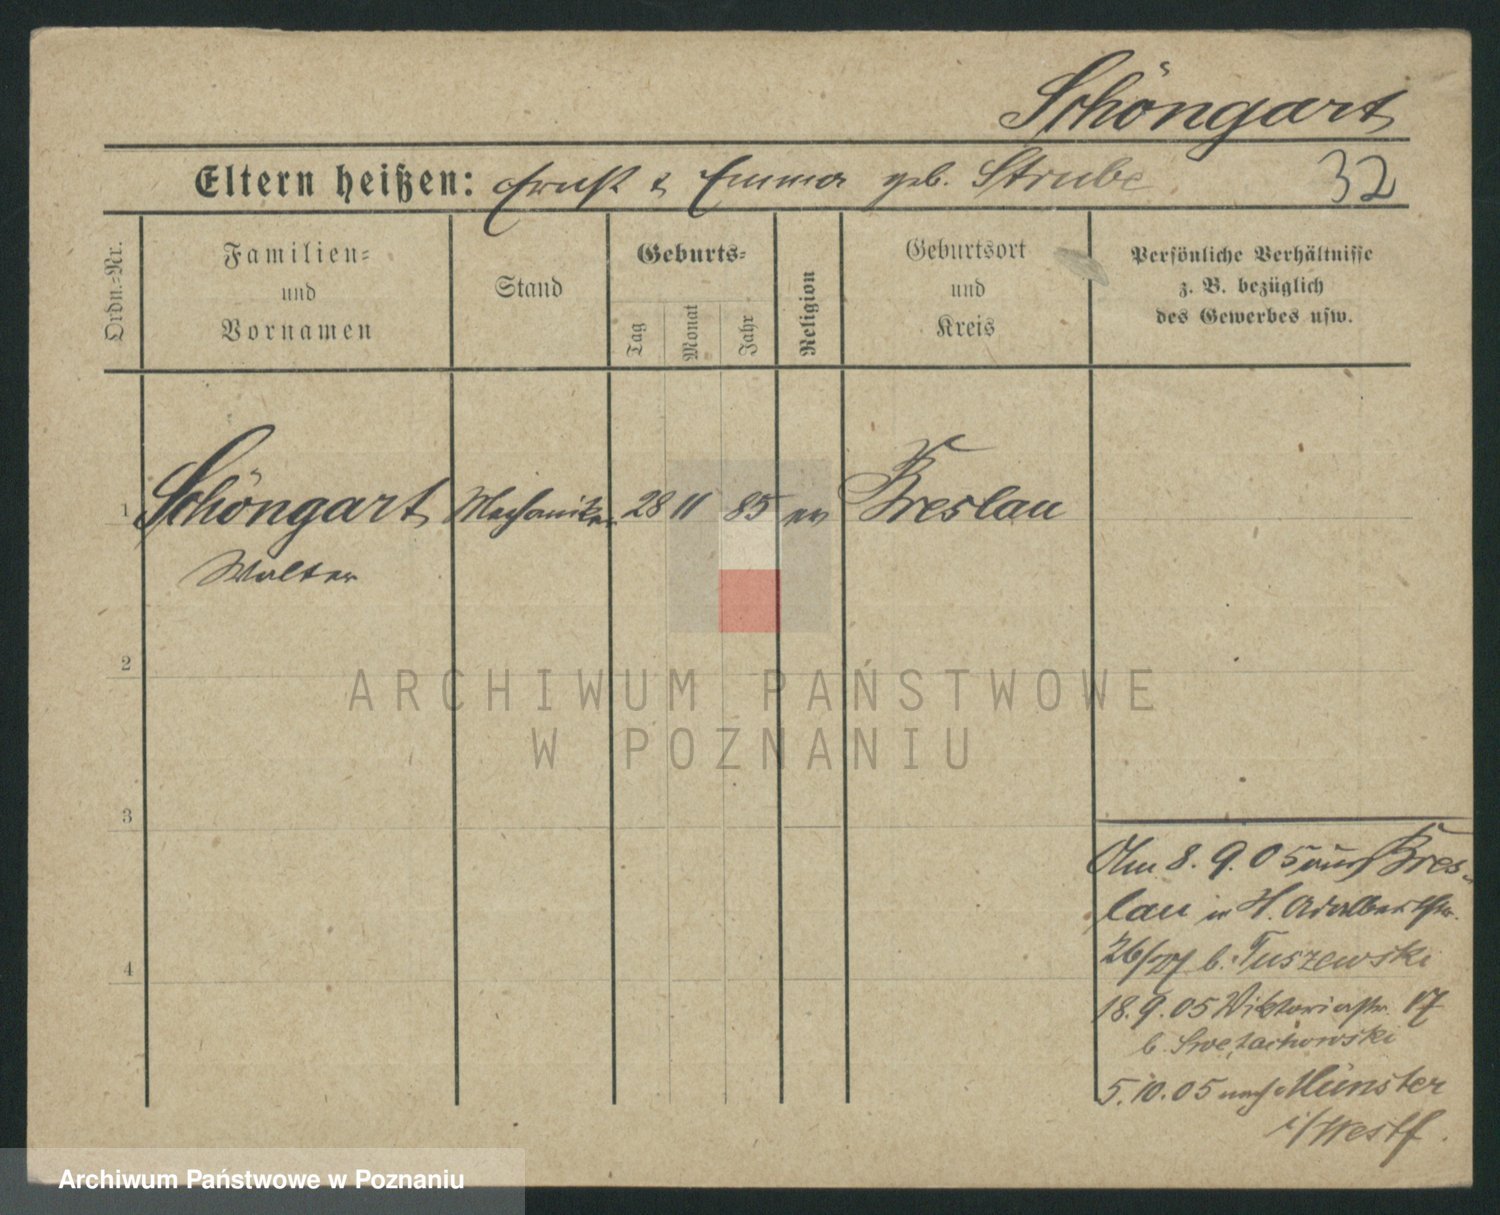 Schöngart
Eltern heißen: Ernst & Emma geb. Strube
32
Ordn.-Nr.
Familien-
und
Vornamen
Stand
Geburts-
Tag
Monat
Jahr
Religion
Geburtsort
und
Kreis
Persönliche Verhältnisse
z. B. bezüglich
des Gewerbes usw.
1 Schöngart Mechaniker 28 11 85 ev Breslau
Walter
2
ARCHIWUM PAŃSTWOWE
W POZNANIU
3
4
Am 8. 9. 05 aus Bres-
lau in H. Adalbertstr.
26/27 b. Tuszewski
18. 9. 05 Viktoriastr. 17
b. Swęzachowski
5. 10. 05 nach Münster
i/Westf.
Archiwum Państwowe w Poznaniu